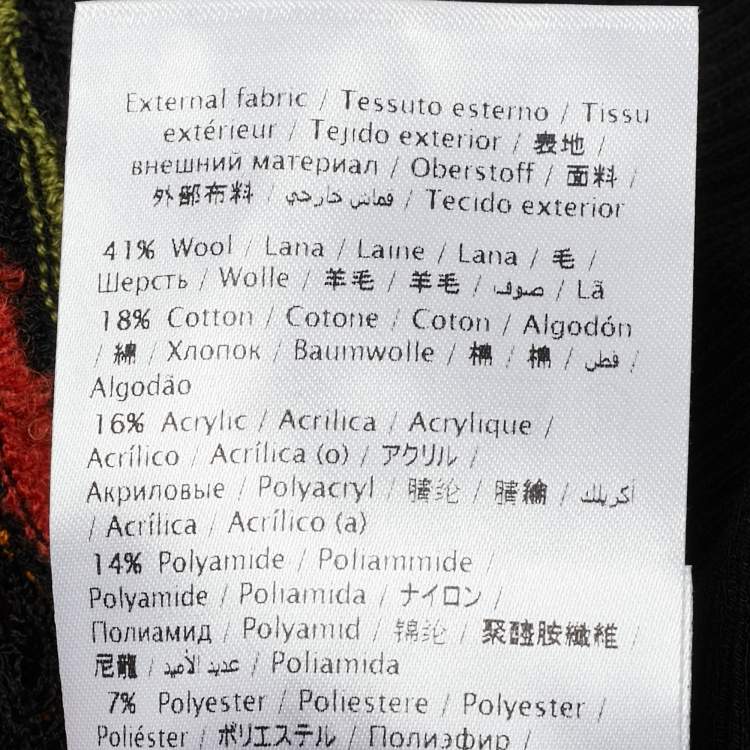 External fabric / Tessuto esterno / Tissu
extérieur / Tejido exterior / 表地 /
внешний материал / Oberstoff / 面料 /
外部布料 / قماش خارجي / Tecido exterior
41% Wool / Lana / Laine / Lana / 毛 /
Шерсть / Wolle / 羊毛 / 羊毛 / صوف / Lã
18% Cotton / Cotone / Coton / Algodón
/ 綿 / Хлопок / Baumwolle / 棉 / 棉 / قطن /
Algodão
16% Acrylic / Acrilica / Acrylique /
Acrílico / Acrílica (o) / アクリル /
Акриловые / Polyacryl / 腈纶 / 腈綸 / أكريلك
/ Acrílica / Acrílico (a)
14% Polyamide / Poliammide /
Polyamide / Poliamida / ナイロン /
Полиамид / Polyamid / 锦纶 / 聚醯胺纖維 /
尼龍 / عديد الأميد / Poliamida
7% Polyester / Poliestere / Polyester /
Poliéster / ポリエステル / Полиэфир /